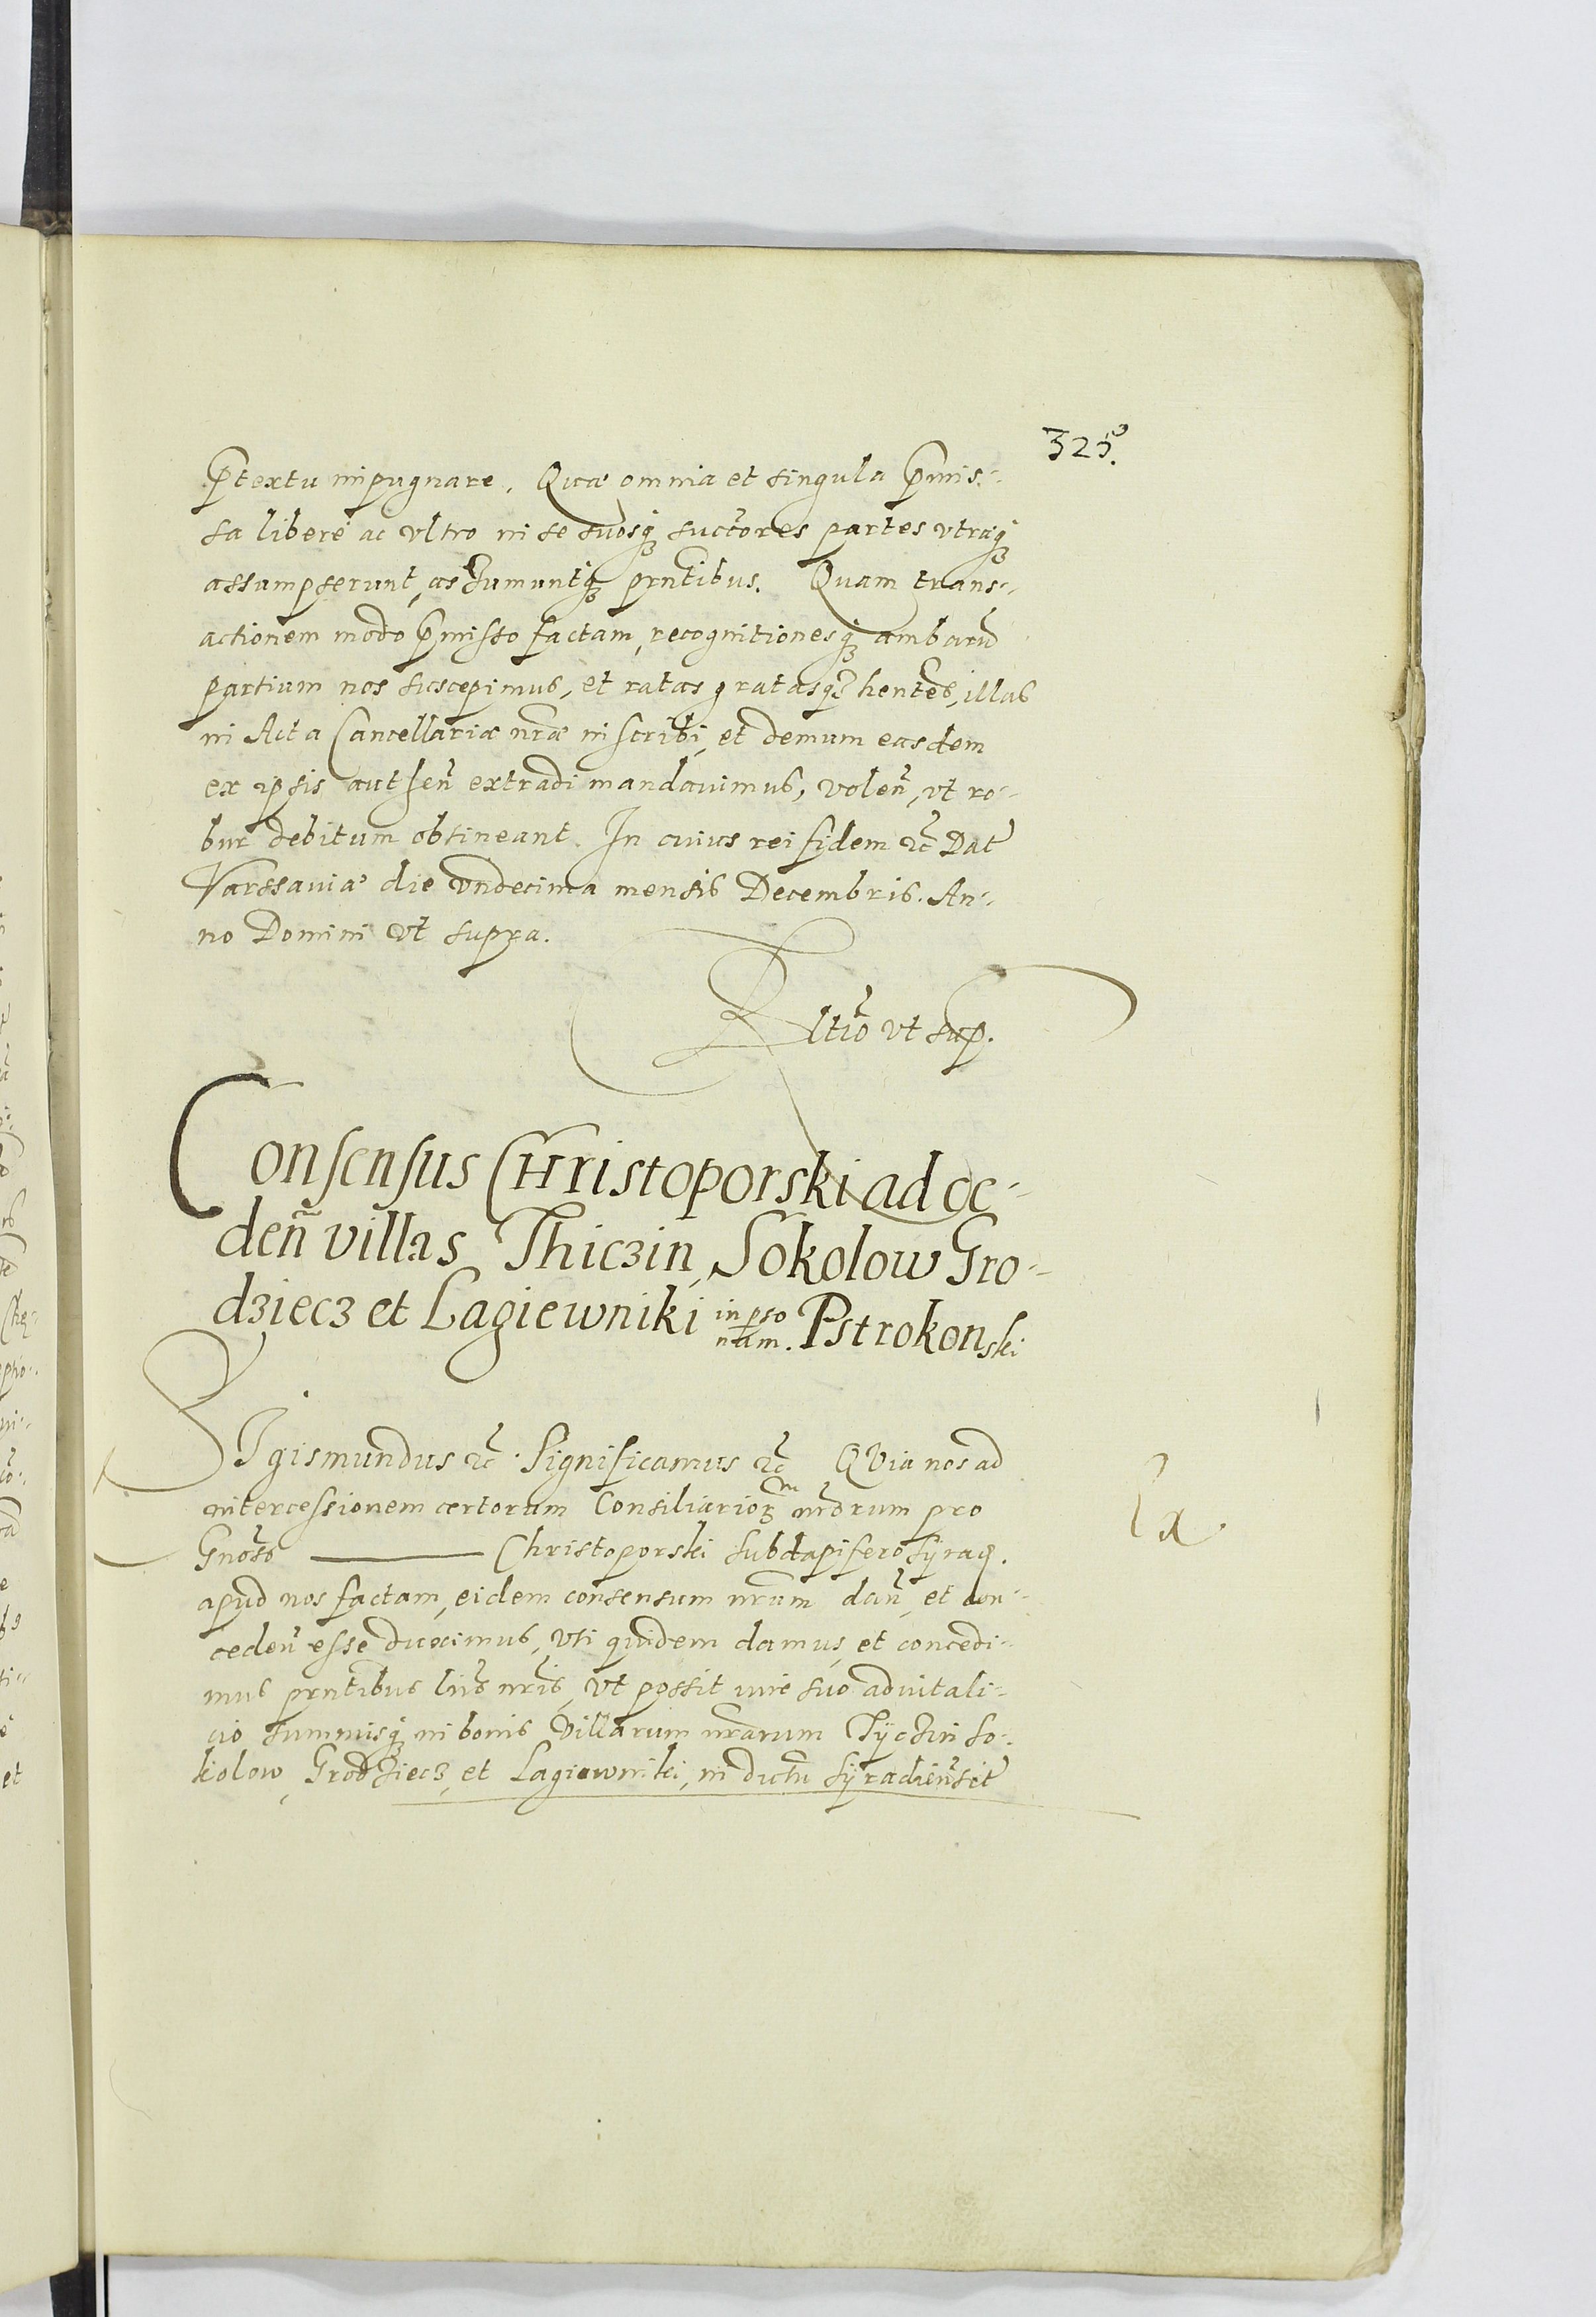 325.
p̃textu impugnare. Quæ omnia et singula p̃mis-
sa liberè ac vltro in se suosq; suctores partes vtraq;
assumpserunt, assumuntq; prntibus. Quam trans-
actionem modo p̃misso factam, recognitionesq; ambarũ
partium nos suscepimus, et ratas gratasq; hentes, illas
in Acta Cancellariæ nr̃æ inscribi, et demum easdem
ex ipsis authen̄ extradi mandauimus, volen̄, vt ro-
bur debitum obtineant. In cuius rei fidem &c Dat
Varssauiæ die vndecima mensis Decembris. An-
no Domini vt supra.
Rltio vt sup.
Consensus Christoporski ad ce-
den̄ villas Thiczin, Sokolow Gro-
dziecz et Lagiewniki in pso
nam. Pstrokonski
SIgismundus &c. Significamus &c QVia nos ad
intercessionem certorum Consiliarior; nr̃orum pro
Gnoso ——— Christoporski subdapifero Syrad.
apud nos factam, eidem consensum nrum dan̄, et con-
ceden̄ esse duximus, vti quidem damus, et concedi-
mus prntibus lris nris, vt possit iure suo aduitali-
cio summisq; in bonis villarum nrarum Tyczin So-
kolow, Grodziecz, et Lagiewniki, in dictu Syradien̄ sit